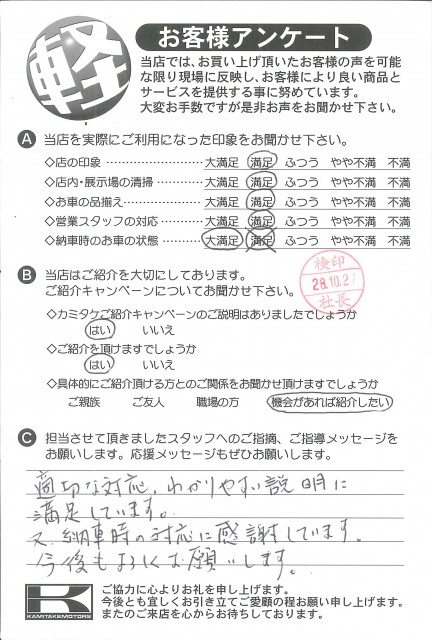 軽
お客様アンケート
当店では、お買い上げ頂いたお客様の声を可能
な限り現場に反映し、お客様により良い商品と
サービスを提供する事に努めています。
大変お手数ですが是非お声をお聞かせ下さい。
A 当店を実際にご利用になった印象をお聞かせ下さい。
◇店の印象 ‥‥‥‥‥‥‥‥ 大満足 満足 ふつう やや不満 不満
◇店内・展示場の清掃 ‥‥‥‥ 大満足 満足 ふつう やや不満 不満
◇お車の品揃え ‥‥‥‥‥‥ 大満足 満足 ふつう やや不満 不満
◇営業スタッフの対応 ‥‥‥‥ 大満足 満足 ふつう やや不満 不満
◇納車時のお車の状態 ‥‥‥‥ 大満足 満足 ふつう やや不満 不満
B 当店はご紹介を大切にしております。
ご紹介キャンペーンについてお聞かせ下さい。
検印
28.10.27
社長
◇カミタケご紹介キャンペーンのご説明はありましたでしょうか
はい いいえ
◇ご紹介を頂けますでしょうか
はい いいえ
◇具体的にご紹介頂ける方とのご関係をお聞かせ頂けますでしょうか
ご親族 ご友人 職場の方 機会があれば紹介したい
C 担当させて頂きましたスタッフへのご指摘、ご指導メッセージを
お願いします。応援メッセージもぜひお願いします。
適切な対応、わかりやすい説明に
満足しています。
又、納車時の対応に感謝しています。
今後もよろしくお願いします。
K
KAMITAKEMOTORS
ご協力に心よりお礼を申し上げます。
今後とも宜しくお引き立てご愛顧の程お願い申し上げます。
またのご来店を心からお待ちしております。